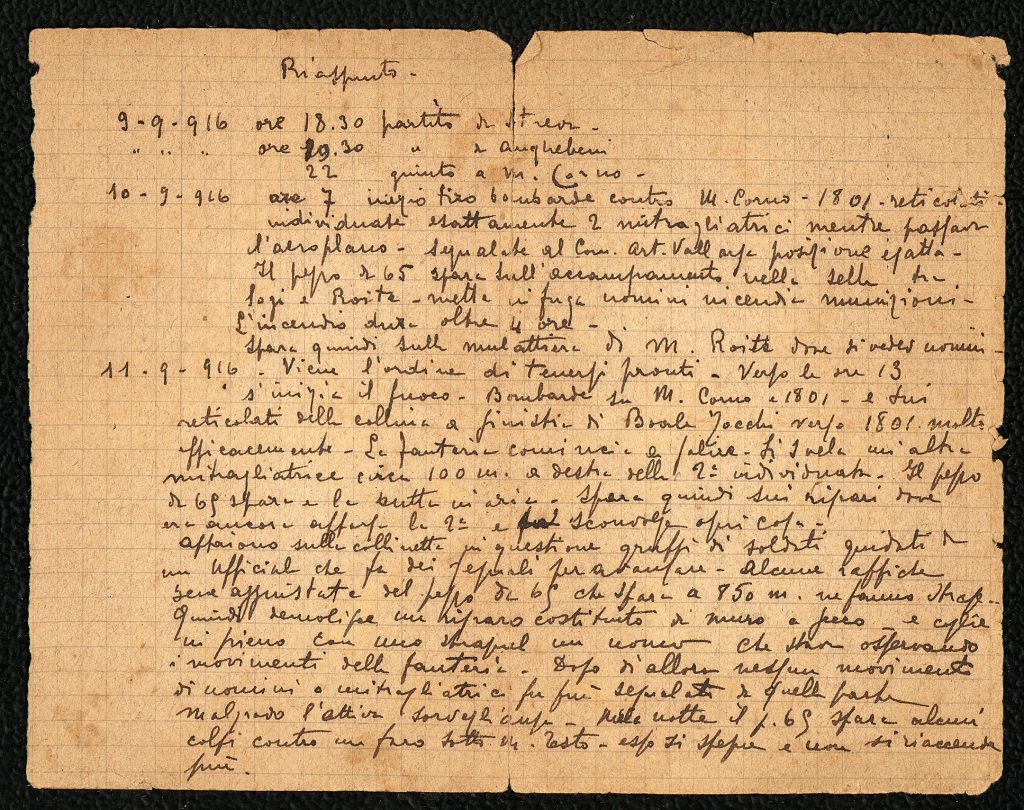 Riassunto -
9-9-916 ore 18.30 partito da Streva -
" " " ore 19.30 " da Anghebeni
22 giunto a M. Corno -
10-9-916 ore 7 inizio tiro bombarde contro M. Corno - 1801 - reticolati -
individuate esattamente 2 mitragliatrici mentre passava
l'aeroplano - segnalate al Com. Art. Vallarsa posizione esatta -
Il pezzo da 65 spara sull'accampamento nella sella tra
Logi e Roite - mette in fuga uomini incendia munizioni -
L'incendio dura oltre 4 ore -
Spara quindi sulla mulattiera di M. Roite dove si vedev uomini -
11-9-916 . Viene l'ordine di tenersi pronti - Verso le ore 13
s'inizia il fuoco - Bombarde su M. Corno e 1801 - e sui
reticolati della collina a sinistra di Bocchi verso 1801 molto
efficacemente - La fanteria comincia a salire - Si svela un'altra
mitragliatrice circa 100 m. a destra della 2ª individuata. Il pezzo
da 65 spara e la butta in aria - Spara quindi sui ripari dove
era ancora apparsa la 2ª e sconvolge ogni cosa -
Appaiono sulla collinetta in questione gruppi di soldati guidati da
un Ufficiale che fa dei segnali per avanzare - Alcune raffiche
bene aggiustate del pezzo da 65 che spara a 850 m. ne fanno strage -
Quindi demolisce un riparo costituito di muro a secco - e coglie
in pieno con uno shrapnel un uomo che stava osservando
i movimenti della fanteria - Dopo di allora nessun movimento
di uomini o mitragliatrici fu più segnalato da quella parte
malgrado l'attiva sorveglianza - Nella notte il p. 65 spara alcuni
colpi contro un faro sotto M. Testo - esso si spegne e non si riaccende
più.